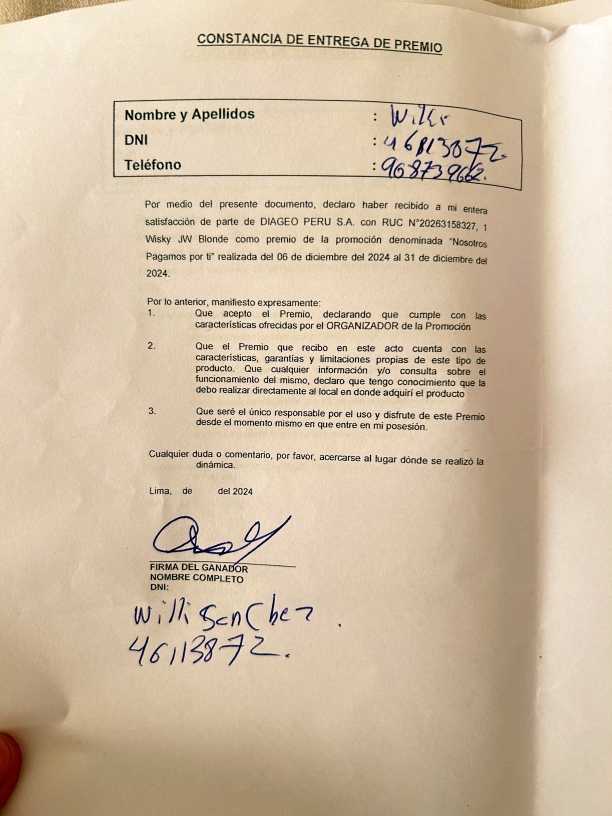 CONSTANCIA DE ENTREGA DE PREMIO
Nombre y Apellidos :
DNI :
Teléfono :
Por medio del presente documento, declaro haber recibido a mi entera
satisfacción de parte de DIAGEO PERU S.A. con RUC N°20263158327, 1
Wisky JW Blonde como premio de la promoción denominada "Nosotros
Pagamos por ti" realizada del 06 de diciembre del 2024 al 31 de diciembre del
2024.
Por lo anterior, manifiesto expresamente:
1. Que acepto el Premio, declarando que cumple con las
características ofrecidas por el ORGANIZADOR de la Promoción
2. Que el Premio que recibo en este acto cuenta con las
características, garantías y limitaciones propias de este tipo de
producto. Que cualquier información y/o consulta sobre el
funcionamiento del mismo, declaro que tengo conocimiento que la
debo realizar directamente al local en donde adquirí el producto
3. Que seré el único responsable por el uso y disfrute de este Premio
desde el momento mismo en que entre en mi posesión.
Cualquier duda o comentario, por favor, acercarse al lugar dónde se realizó la
dinámica.
Lima, de del 2024
FIRMA DEL GANADOR
NOMBRE COMPLETO
DNI:
Willi Sanchez
46113872.